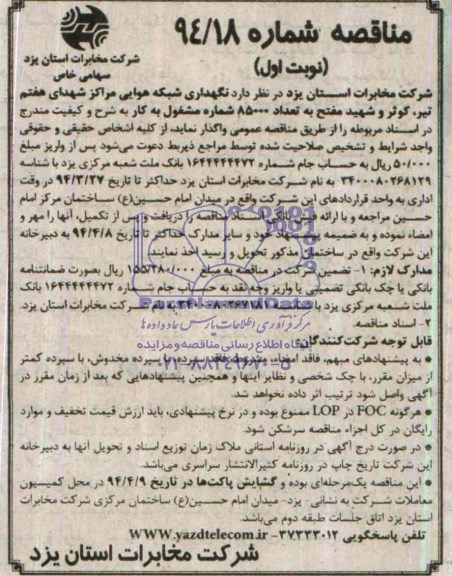 مناقصه شماره ۹۴/۱۸
(نوبت اول)
شرکت مخابرات استان یزد
سهامی خاص
شرکت مخابرات استان یزد در نظر دارد نگهداری شبکه هوایی مراکز شهدای هفتم
تیر، کوثر و شهید مفتح به تعداد ۸۵۰۰۰ شماره مشغول به کار به شرح و کیفیت مندرج
در اسناد مربوطه را از طریق مناقصه عمومی واگذار نماید، از کلیه اشخاص حقیقی و حقوقی
واجد شرایط و تشخیص صلاحیت شده توسط مراجع ذیربط دعوت می‌شود پس از واریز مبلغ
۵۰/۰۰۰ ریال به حساب جام شماره ۱۶۴۴۴۴۴۴۷۲ بانک ملت شعبه مرکزی یزد با شناسه
۳۴۰۰۰۸۰۲۶۸۱۲۹ به نام شرکت مخابرات استان یزد حداکثر تا تاریخ ۹۴/۳/۲۷ در وقت
اداری به واحد قراردادهای این شرکت واقع در میدان امام حسین(ع) ساختمان مرکز امام
حسین مراجعه و با ارائه فیش بانکی اسناد مناقصه را دریافت و پس از تکمیل، آنها را مهر و
امضاء نموده و به ضمیمه پیشنهاد خود و سایر مدارک حداکثر تا تاریخ ۹۴/۴/۸ به دبیرخانه
این شرکت واقع در ساختمان مذکور تحویل و رسید اخذ نمایند.
مدارک لازم: ۱- تضمین شرکت در مناقصه به مبلغ ۱۵۵/۳۸۰/۰۰۰ ریال بصورت ضمانتنامه
بانکی یا چک بانکی تضمینی یا واریز وجه نقد به حساب جام شماره ۱۶۴۴۴۴۴۴۷۲ بانک
ملت شعبه مرکزی یزد با شناسه به نام شرکت مخابرات استان یزد.
۲- اسناد مناقصه.
مرکز فرآوری اطلاعات پارس نماد داده ها
قابل توجه شرکت‌کنندگان:
پایگاه اطلاع رسانی مناقصه و مزایده
• به پیشنهادهای مبهم، فاقد امضاء، مشروط، فاقد سپرده، با سپرده مخدوش، با سپرده کمتر
۰۲۱-۸۸۳۴۹۶۷۰-۵
از میزان مقرر، با چک شخصی و نظایر اینها و همچنین پیشنهادهایی که بعد از زمان مقرر در
آگهی واصل شود ترتیب اثر داده نخواهد شد.
• هرگونه FOC در LOP ممنوع بوده و در نرخ پیشنهادی، باید ارزش قیمت تخفیف و موارد
رایگان در کل اجزاء مناقصه سرشکن شود.
• در صورت درج آگهی در روزنامه استانی ملاک زمان توزیع اسناد و تحویل آنها به دبیرخانه
این شرکت تاریخ چاپ در روزنامه کثیرالانتشار سراسری می‌باشد.
• این مناقصه یک‌مرحله‌ای بوده و گشایش پاکت‌ها در تاریخ ۹۴/۴/۹ در محل کمیسیون
معاملات شرکت به نشانی - یزد- میدان امام حسین(ع) ساختمان مرکزی شرکت مخابرات
استان یزد اتاق جلسات طبقه دوم می‌باشد.
تلفن پاسخگویی ۳۷۲۳۳۰۱۲- WWW.yazdtelecom.ir
شرکت مخابرات استان یزد